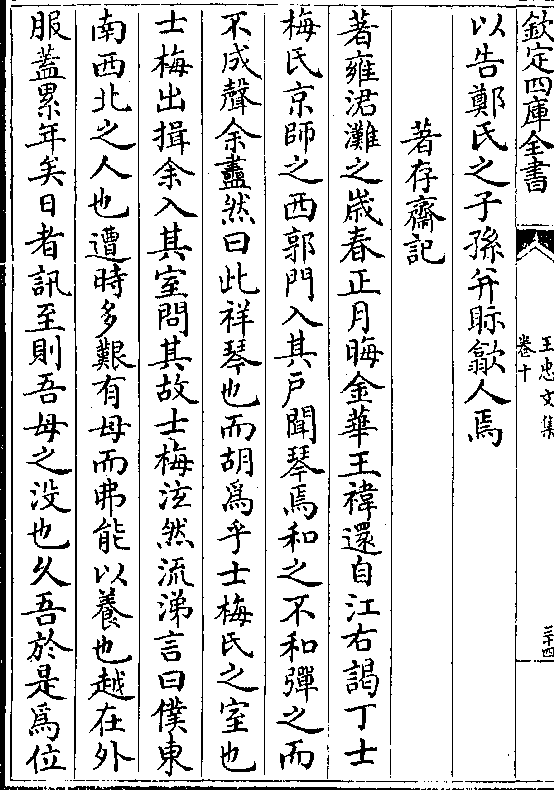 欽定四庫全書
王忠文集
卷十
三十四
以告鄭氏之子孫并眎歙人焉
著存齋記
著雍涒灘之歲春正月晦金華王褘還自江右謁丁士
梅氏京師之西郭門入其戶聞琴焉和之不和彈之而
不成聲余衋然曰此祥琴也而胡為乎士梅氏之室也
士梅出揖余入其室問其故士梅泣然流涕言曰僕東
南西北之人也遭時多艱有母而弗能以養也越在外
服蓋累年矣日者訊至則吾母之没也久吾於是為位